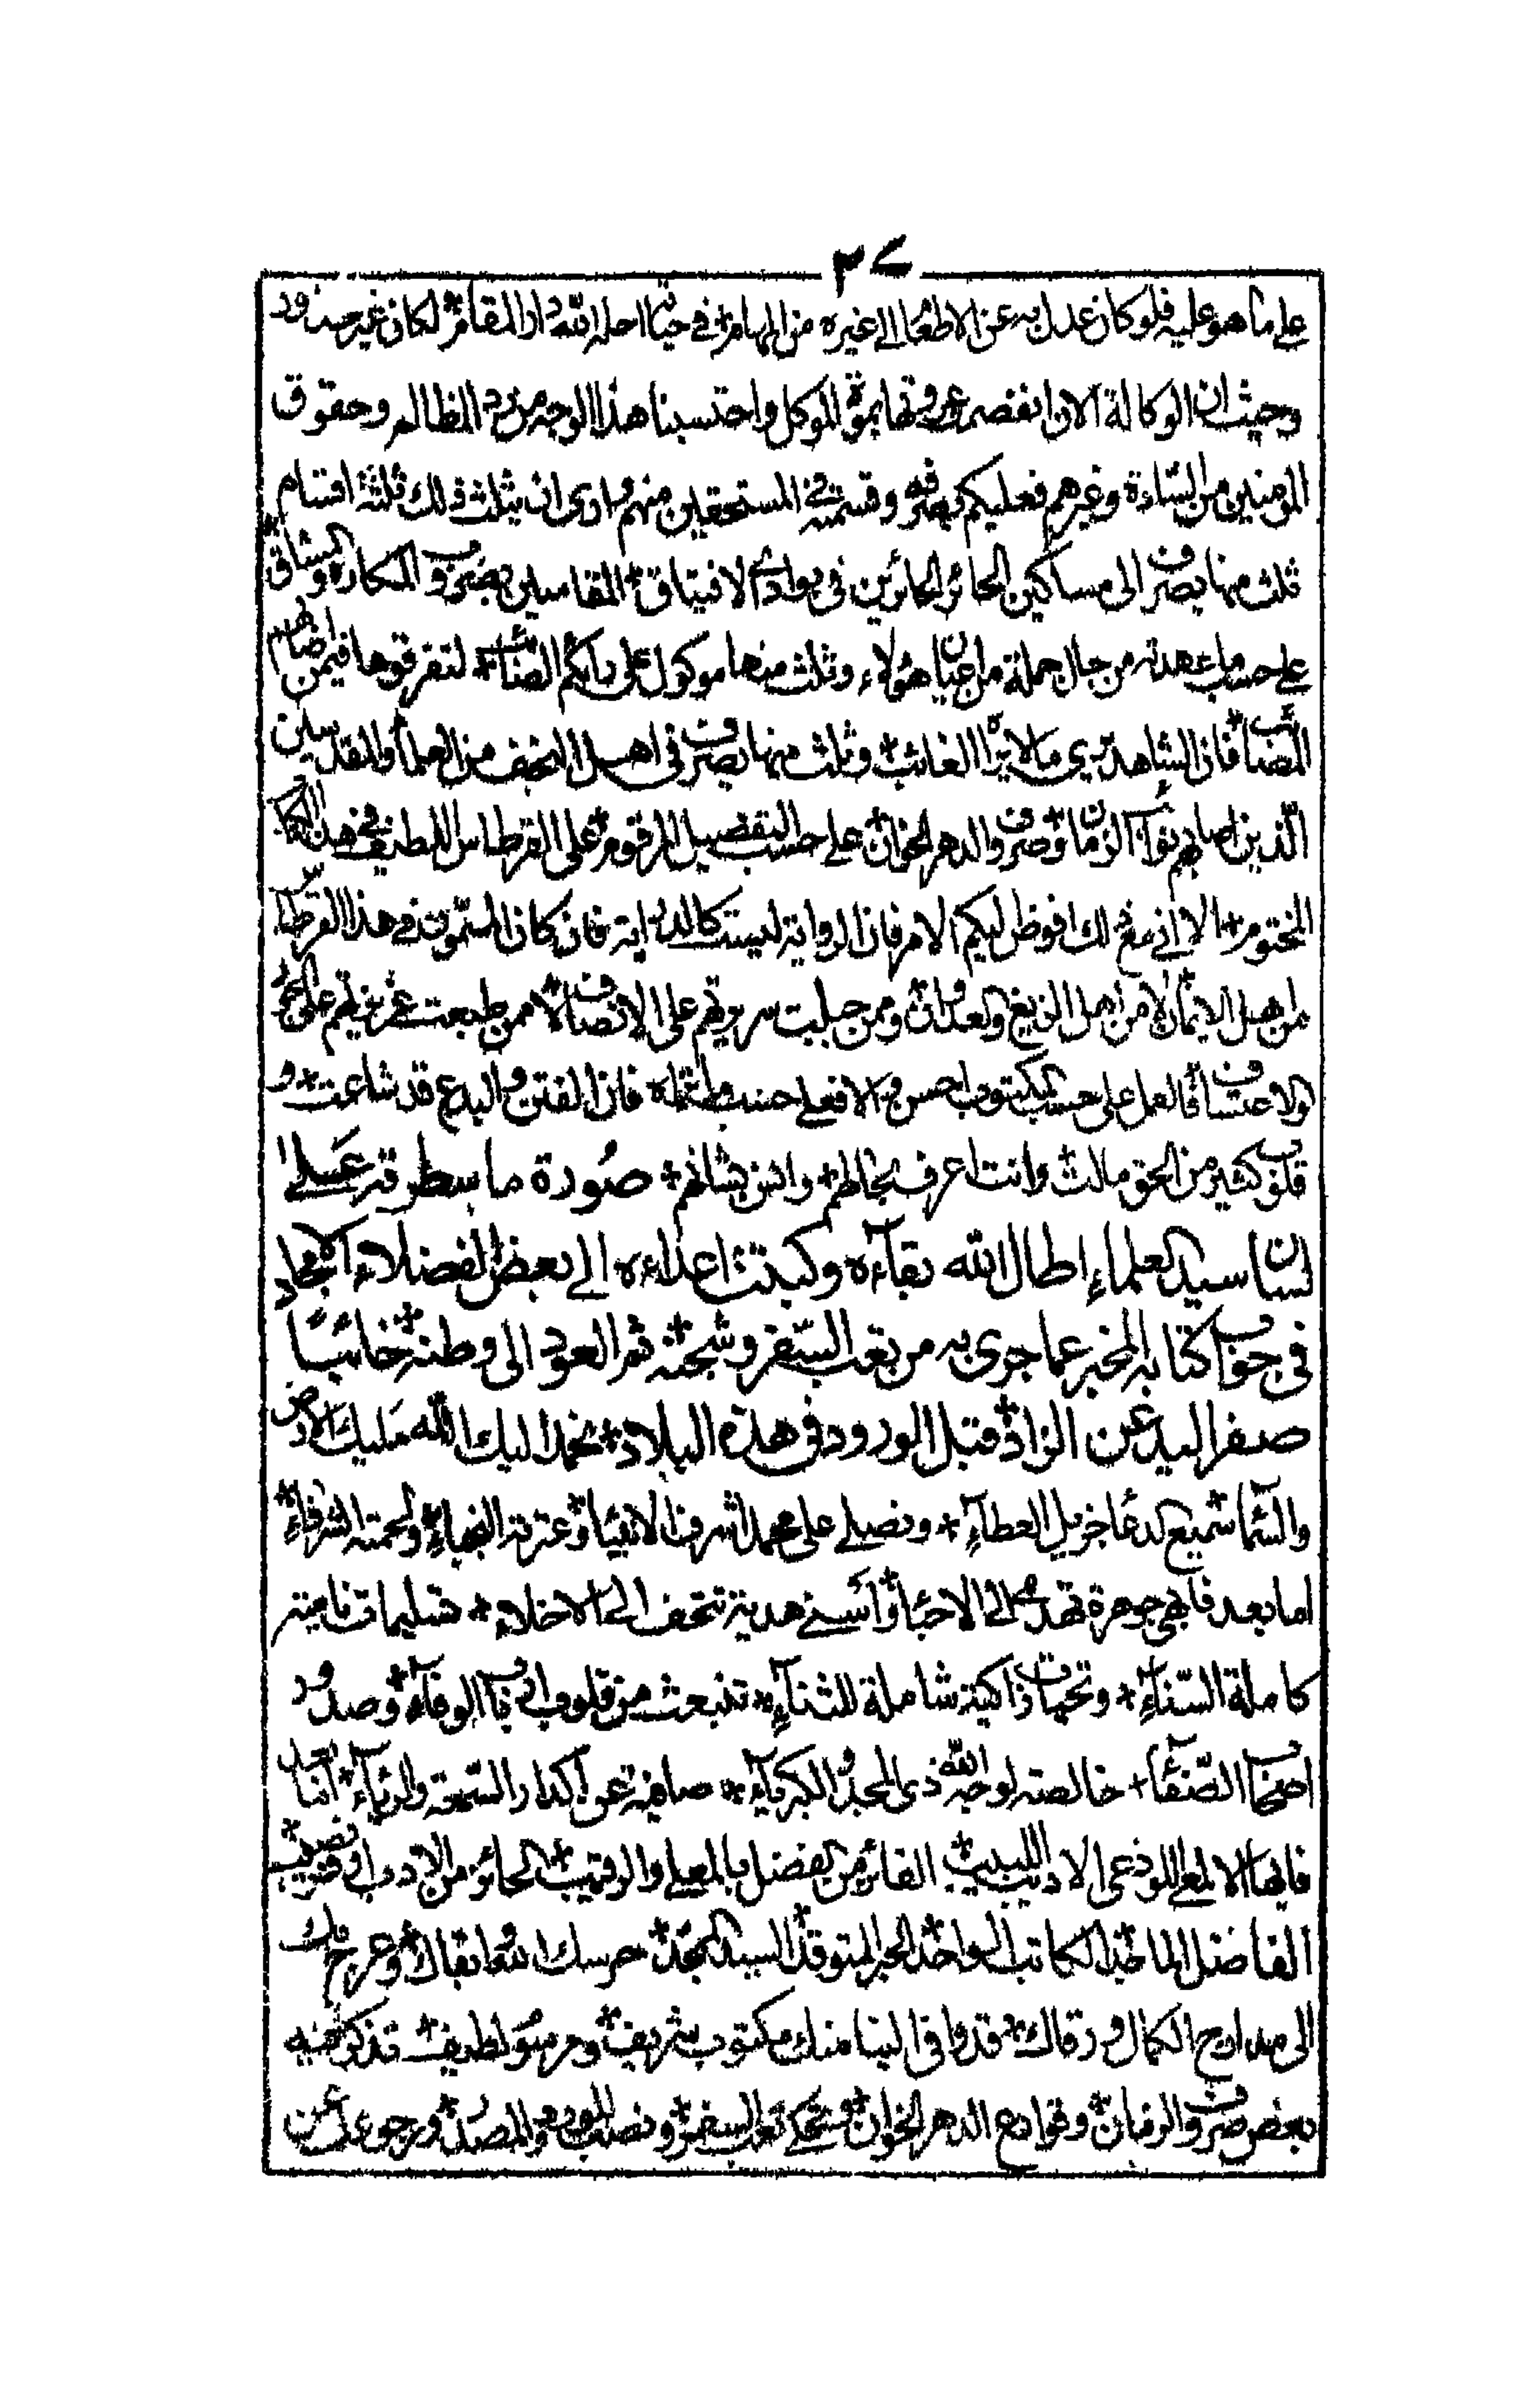 ٣٧
على ما هو عليه فلو كان عدل به عن الاطعام الى غيره من المهام في حياته احله الله دار المقام لكان غير محذور
وحيث ان الوكالة الاولى انفصم عروتها بموت الموكل واحتسبنا هذا الوجه من رد المظالم وحقوق
المومنين من السادة وغيرهم فعليكم بصرفه وقسمته في المستحقين منهم وارى ان يثلث ذلك ثلثة اقسام
ثلث منها يصرف الى مساكين الحائر الحائرين فى بوادى الافتياق المقاسين بضروب المكاره والمشاق
على حساب ما عهدته من حال جملة من اعيان هؤلاء وثلث منها موكول على رايكم الصائب لتفرقوها فيمن اصابهم
المصائب فان الشاهد يرى ما لا يراه الغائب وثلث منها يصرف فى اهل النجف من العلماء والمقدسين
الذين اصابهم نوائب الزمان وصروف الدهر الخوان على حسب التفصيل المرقوم على القرطاس اللطيف في هذا الكتاب
المختوم الا انى مع ذلك افوض اليكم الامر فان الرواية ليست كالدراية فان كان المسمون في هذا القرطاس
من اهل الايمان لا من اهل الزيغ والعدوان وممن جبلت سريرتهم على الانصاف لا ممن طبعت غريزتهم على
والاعتساف فالعمل على حسب المكتوب احسن والا فعلى حسب ما تعلمه فان الفتن والبدع قد شاعت و
قلوب كثير من الحق مالت وانت اعرف بحالهم وانس بشانهم صورة ما سطرته على
لسان سيد العلماء اطال الله بقاءه وكبت اعداءه الى بعض الفضلاء الامجاد
فى جواب كتابه المخبر عما جرى به من تعب السفر وشجنه ثم العود الى وطنه خائبا
صفر اليد عن الزاد قبل الورود فى هذه البلاد نحمد اليك الله مليك الارض
والسماء سميع الدعاء جزيل العطاء ونصلى على محمد اشرف الانبياء وعترته النجباء ولحمته الشرفاء
اما بعد فابهى جوهرة تهدى الى الاحباء واسنى هدية تتحف الى الاخلاء تسليمات نامية
كاملة السناء وتحيات زاكية شاملة للثناء تنبعث من قلوب ارباب الوفاء وصدور
اصحاب الصفاء خالصة لوجه الله ذى المجد والكبرياء صافية عن اكدار السمعة والرياء اما بعد
فايها الالمعى اللوذعى الاديب اللبيب الفائز من الفضل بالمعلى والرقيب الحائز من الادب اوفر نصيب
الفاضل الماجد الكاتب الواحد الحبر المتوقد السيد امجد حرسك الله وابقاك وعرج بك
الى مدارج الكمال ورقاك قد وافى الينا منك مكتوب شريف ومرسوم لطيف قد ذكرت فيه
بعض صروف الزمان وقوادع الدهر الخوان وشكى تعب السفر ونصب الورود والصدر ورجوعك عن